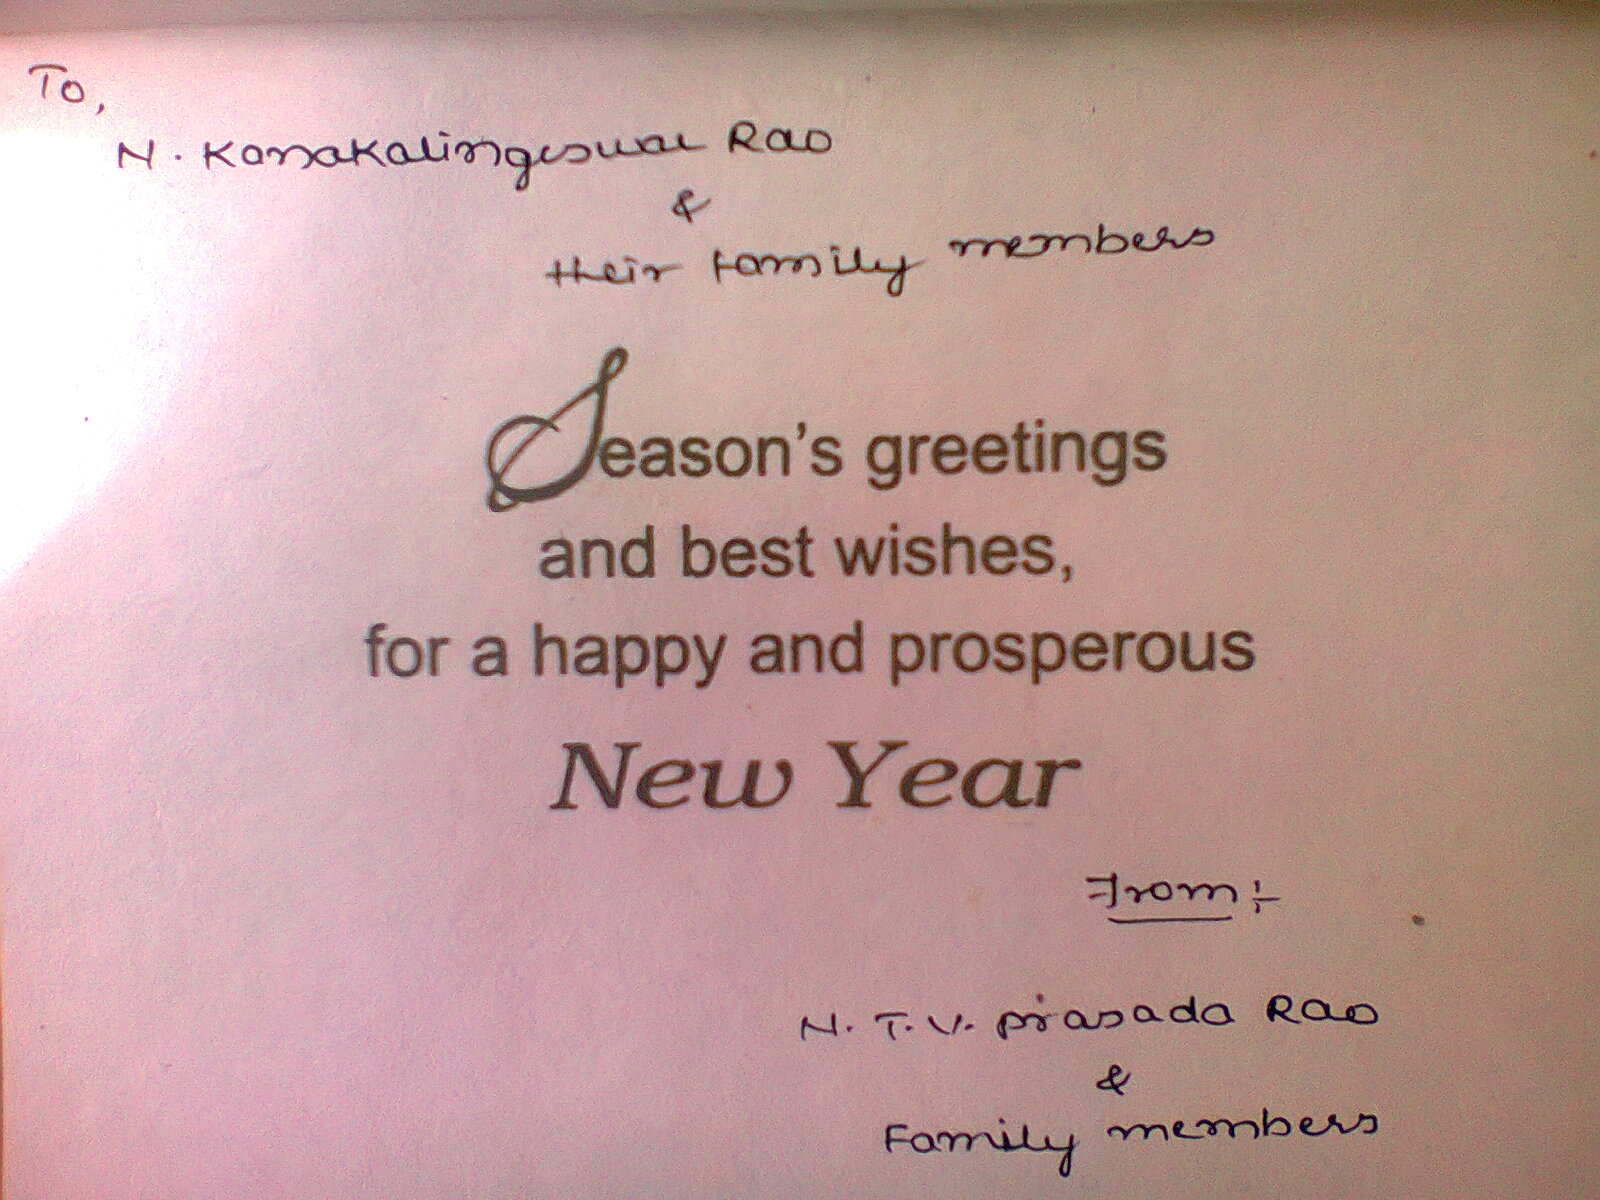 To,
N. Kanakalingeswar Rao
&
their family members
Season's greetings
and best wishes,
for a happy and prosperous
New Year
From :-
N. T. V. Prasada Rao
&
Family members